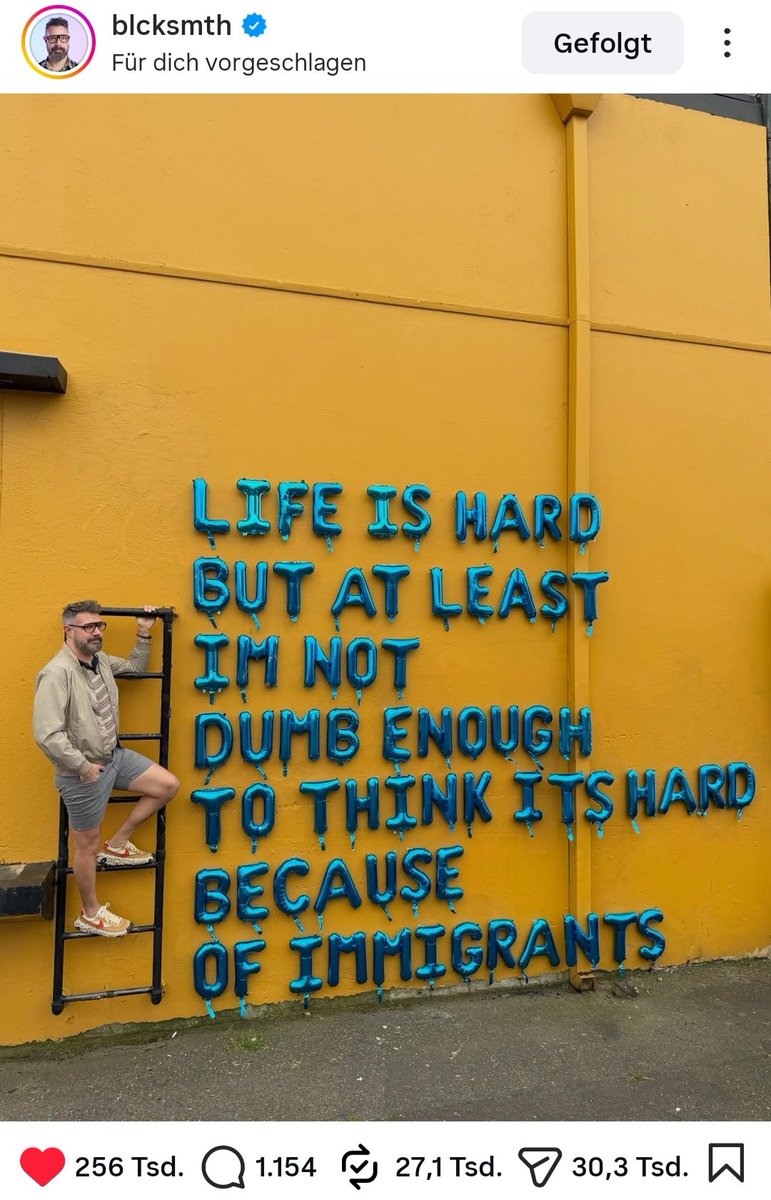 blcksmth
Für dich vorgeschlagen
Gefolgt
LIFE IS HARD
BUT AT LEAST
IM NOT
DUMB ENOUGH
TO THINK ITS HARD
BECAUSE
OF IMMIGRANTS
256 Tsd.
1.154
27,1 Tsd.
30,3 Tsd.